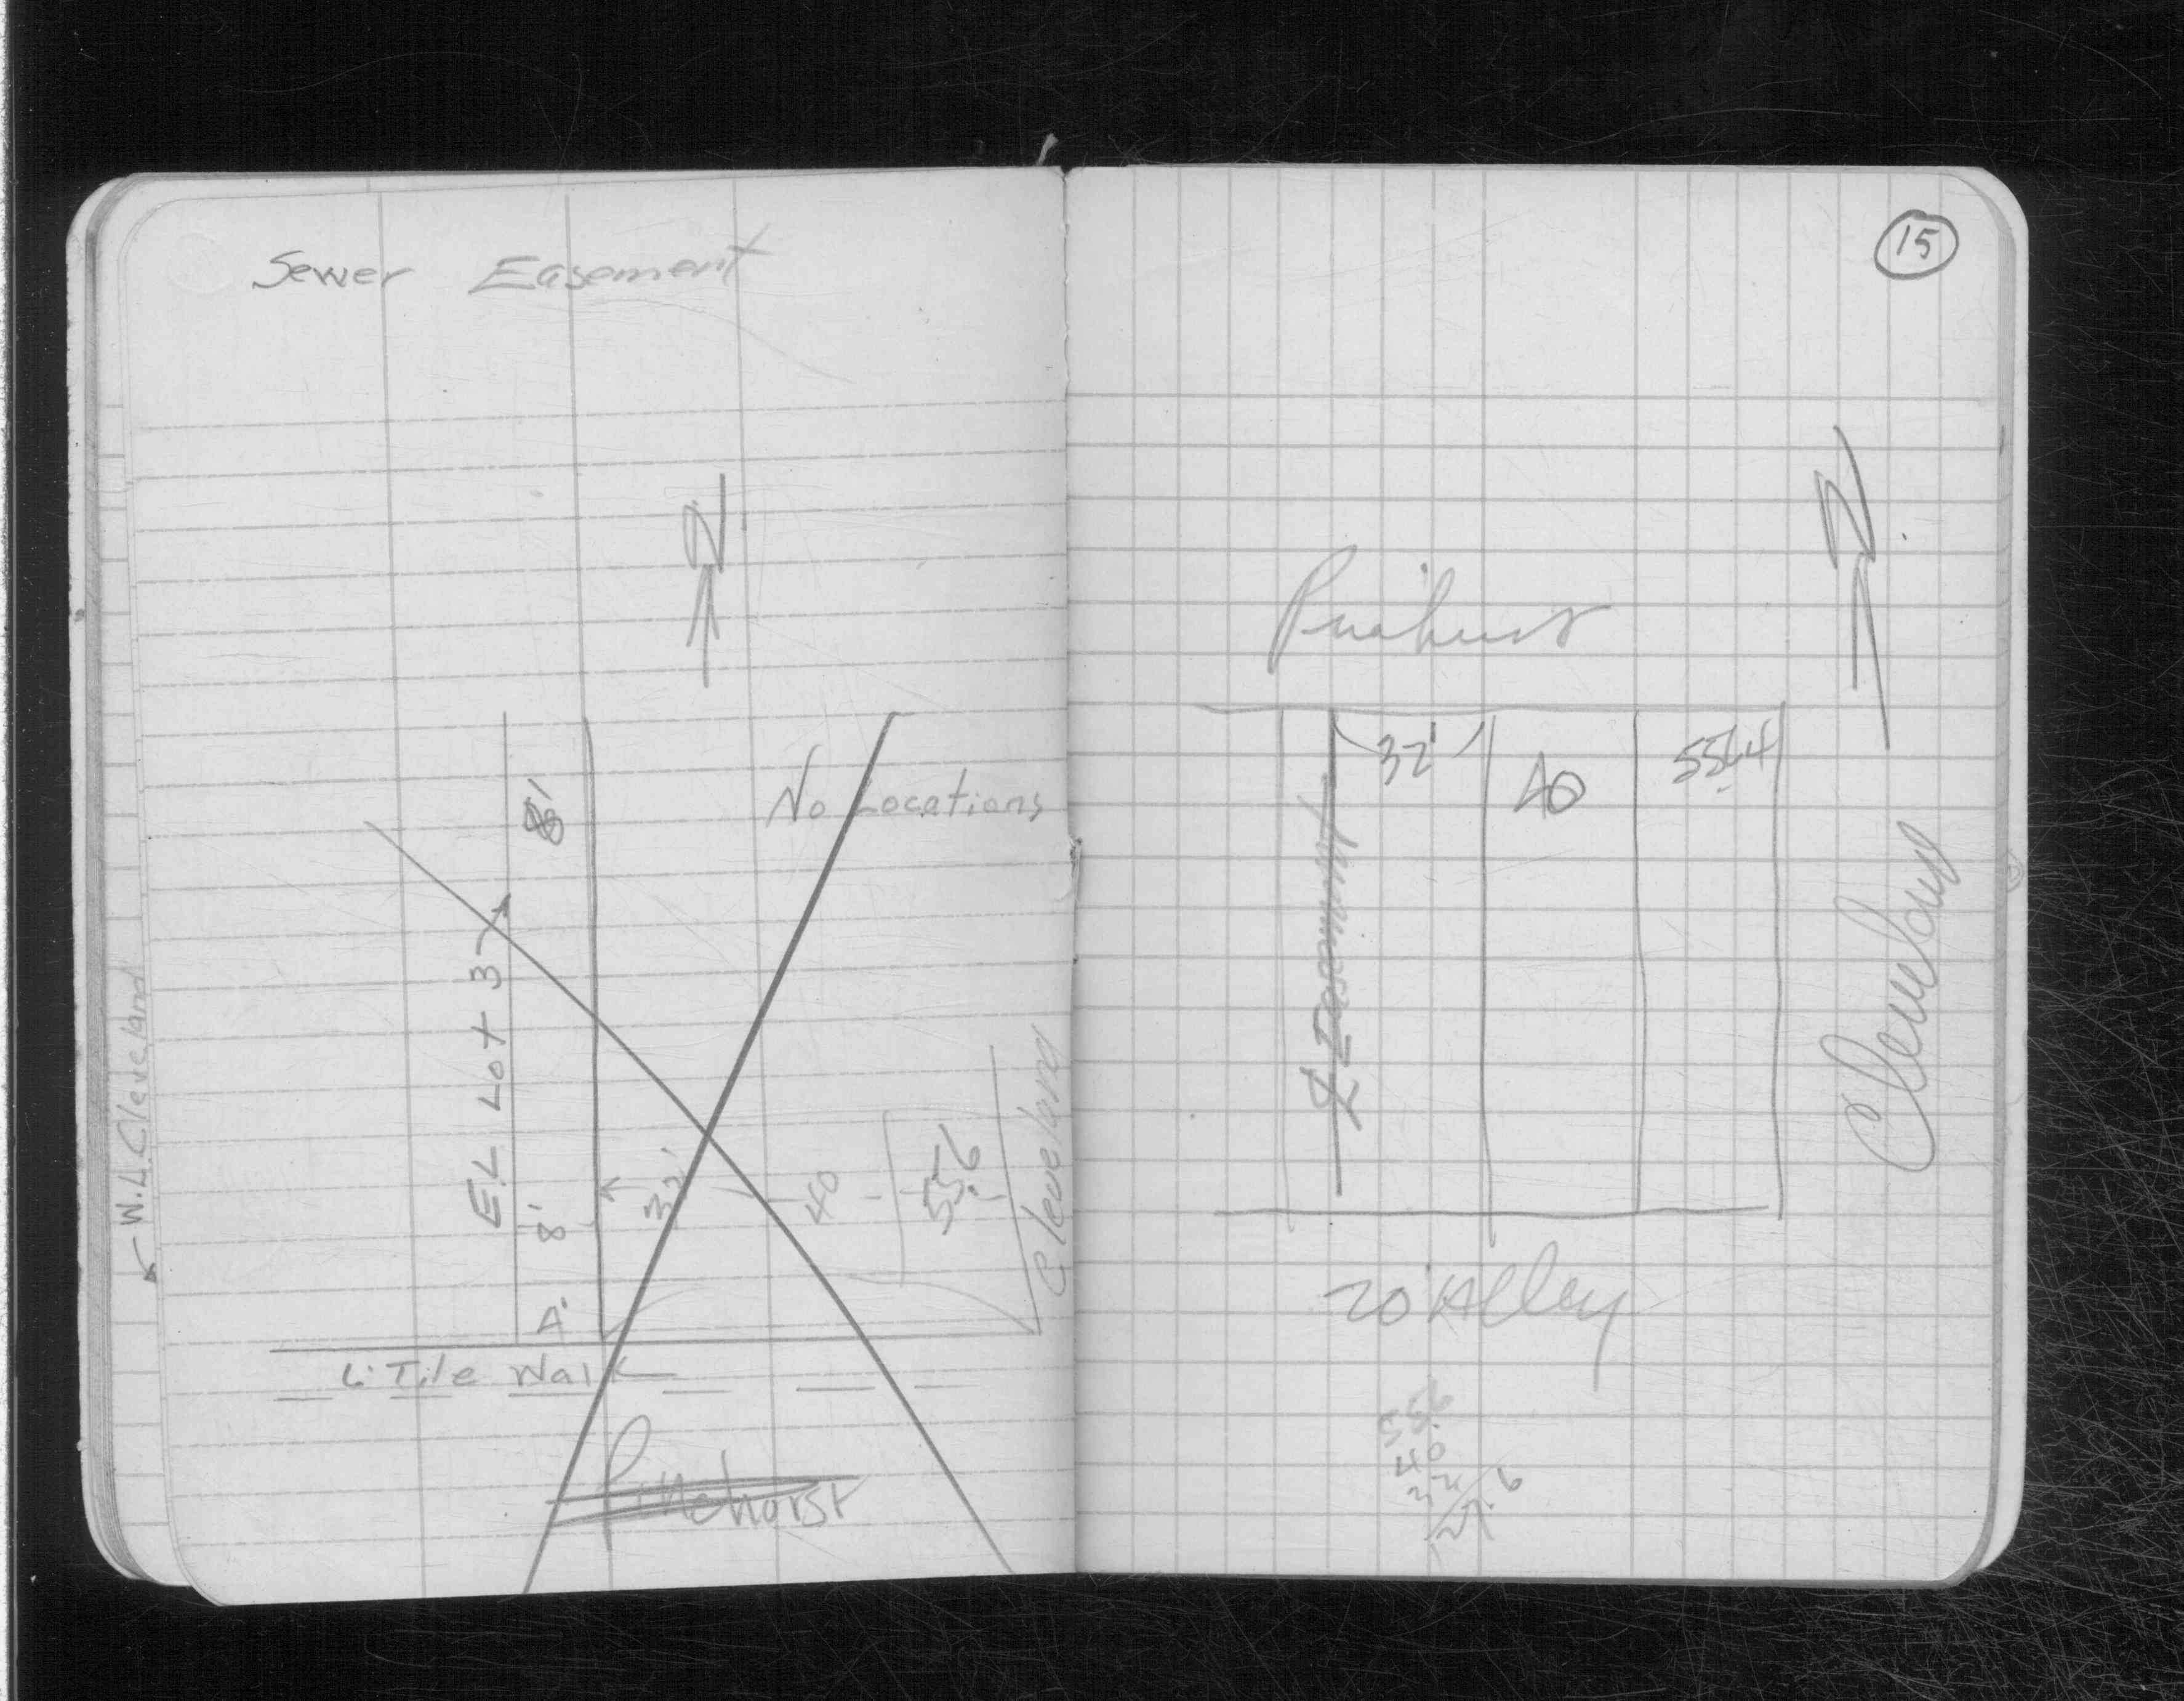 Sewer Easement
N
No Locations
8'
E.L Lot 3
W.L. Cleveland
8'
4'
32'
40
55.6
Cleveland
6' Tile Walk
Pinehurst
15
N
Pinehurst
32'
40
Easement
Cleveland
20' Alley
55.6
40
32